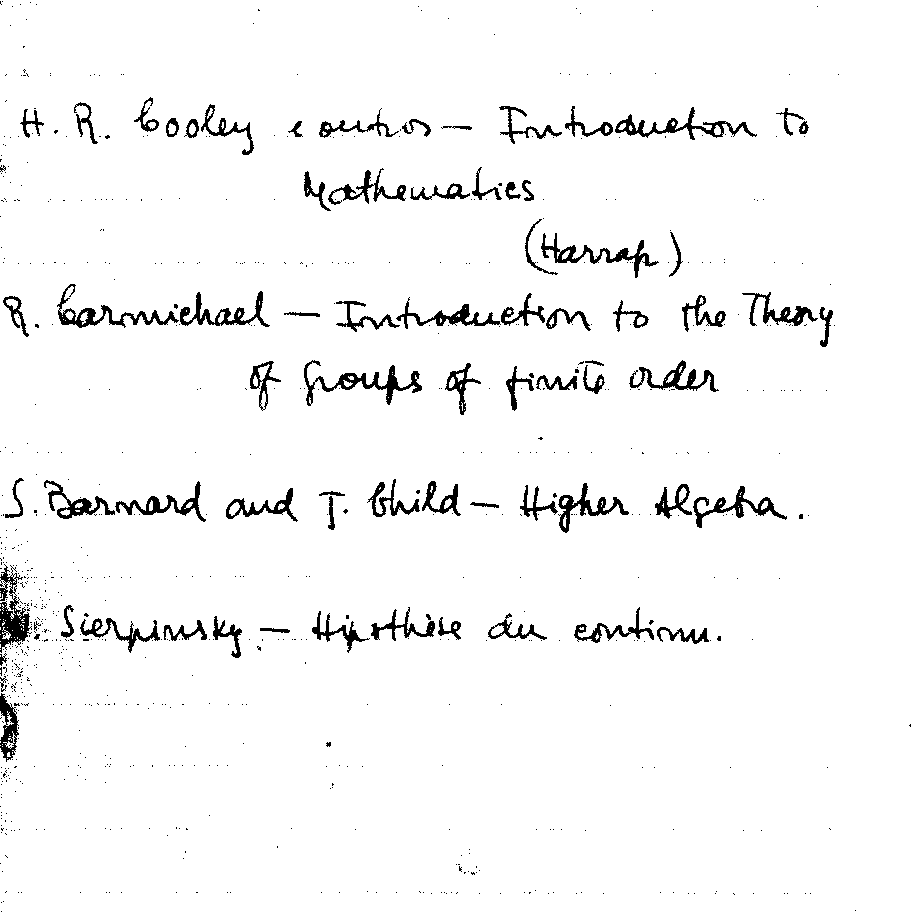 H. R. Cooley e outros — Introduction to
Mathematics
(Harrap)
R. Carmichael — Introduction to the Theory
of Groups of finite order
S. Barnard and J. Child — Higher Algebra.
W. Sierpinsky — Hipothèse du continu.